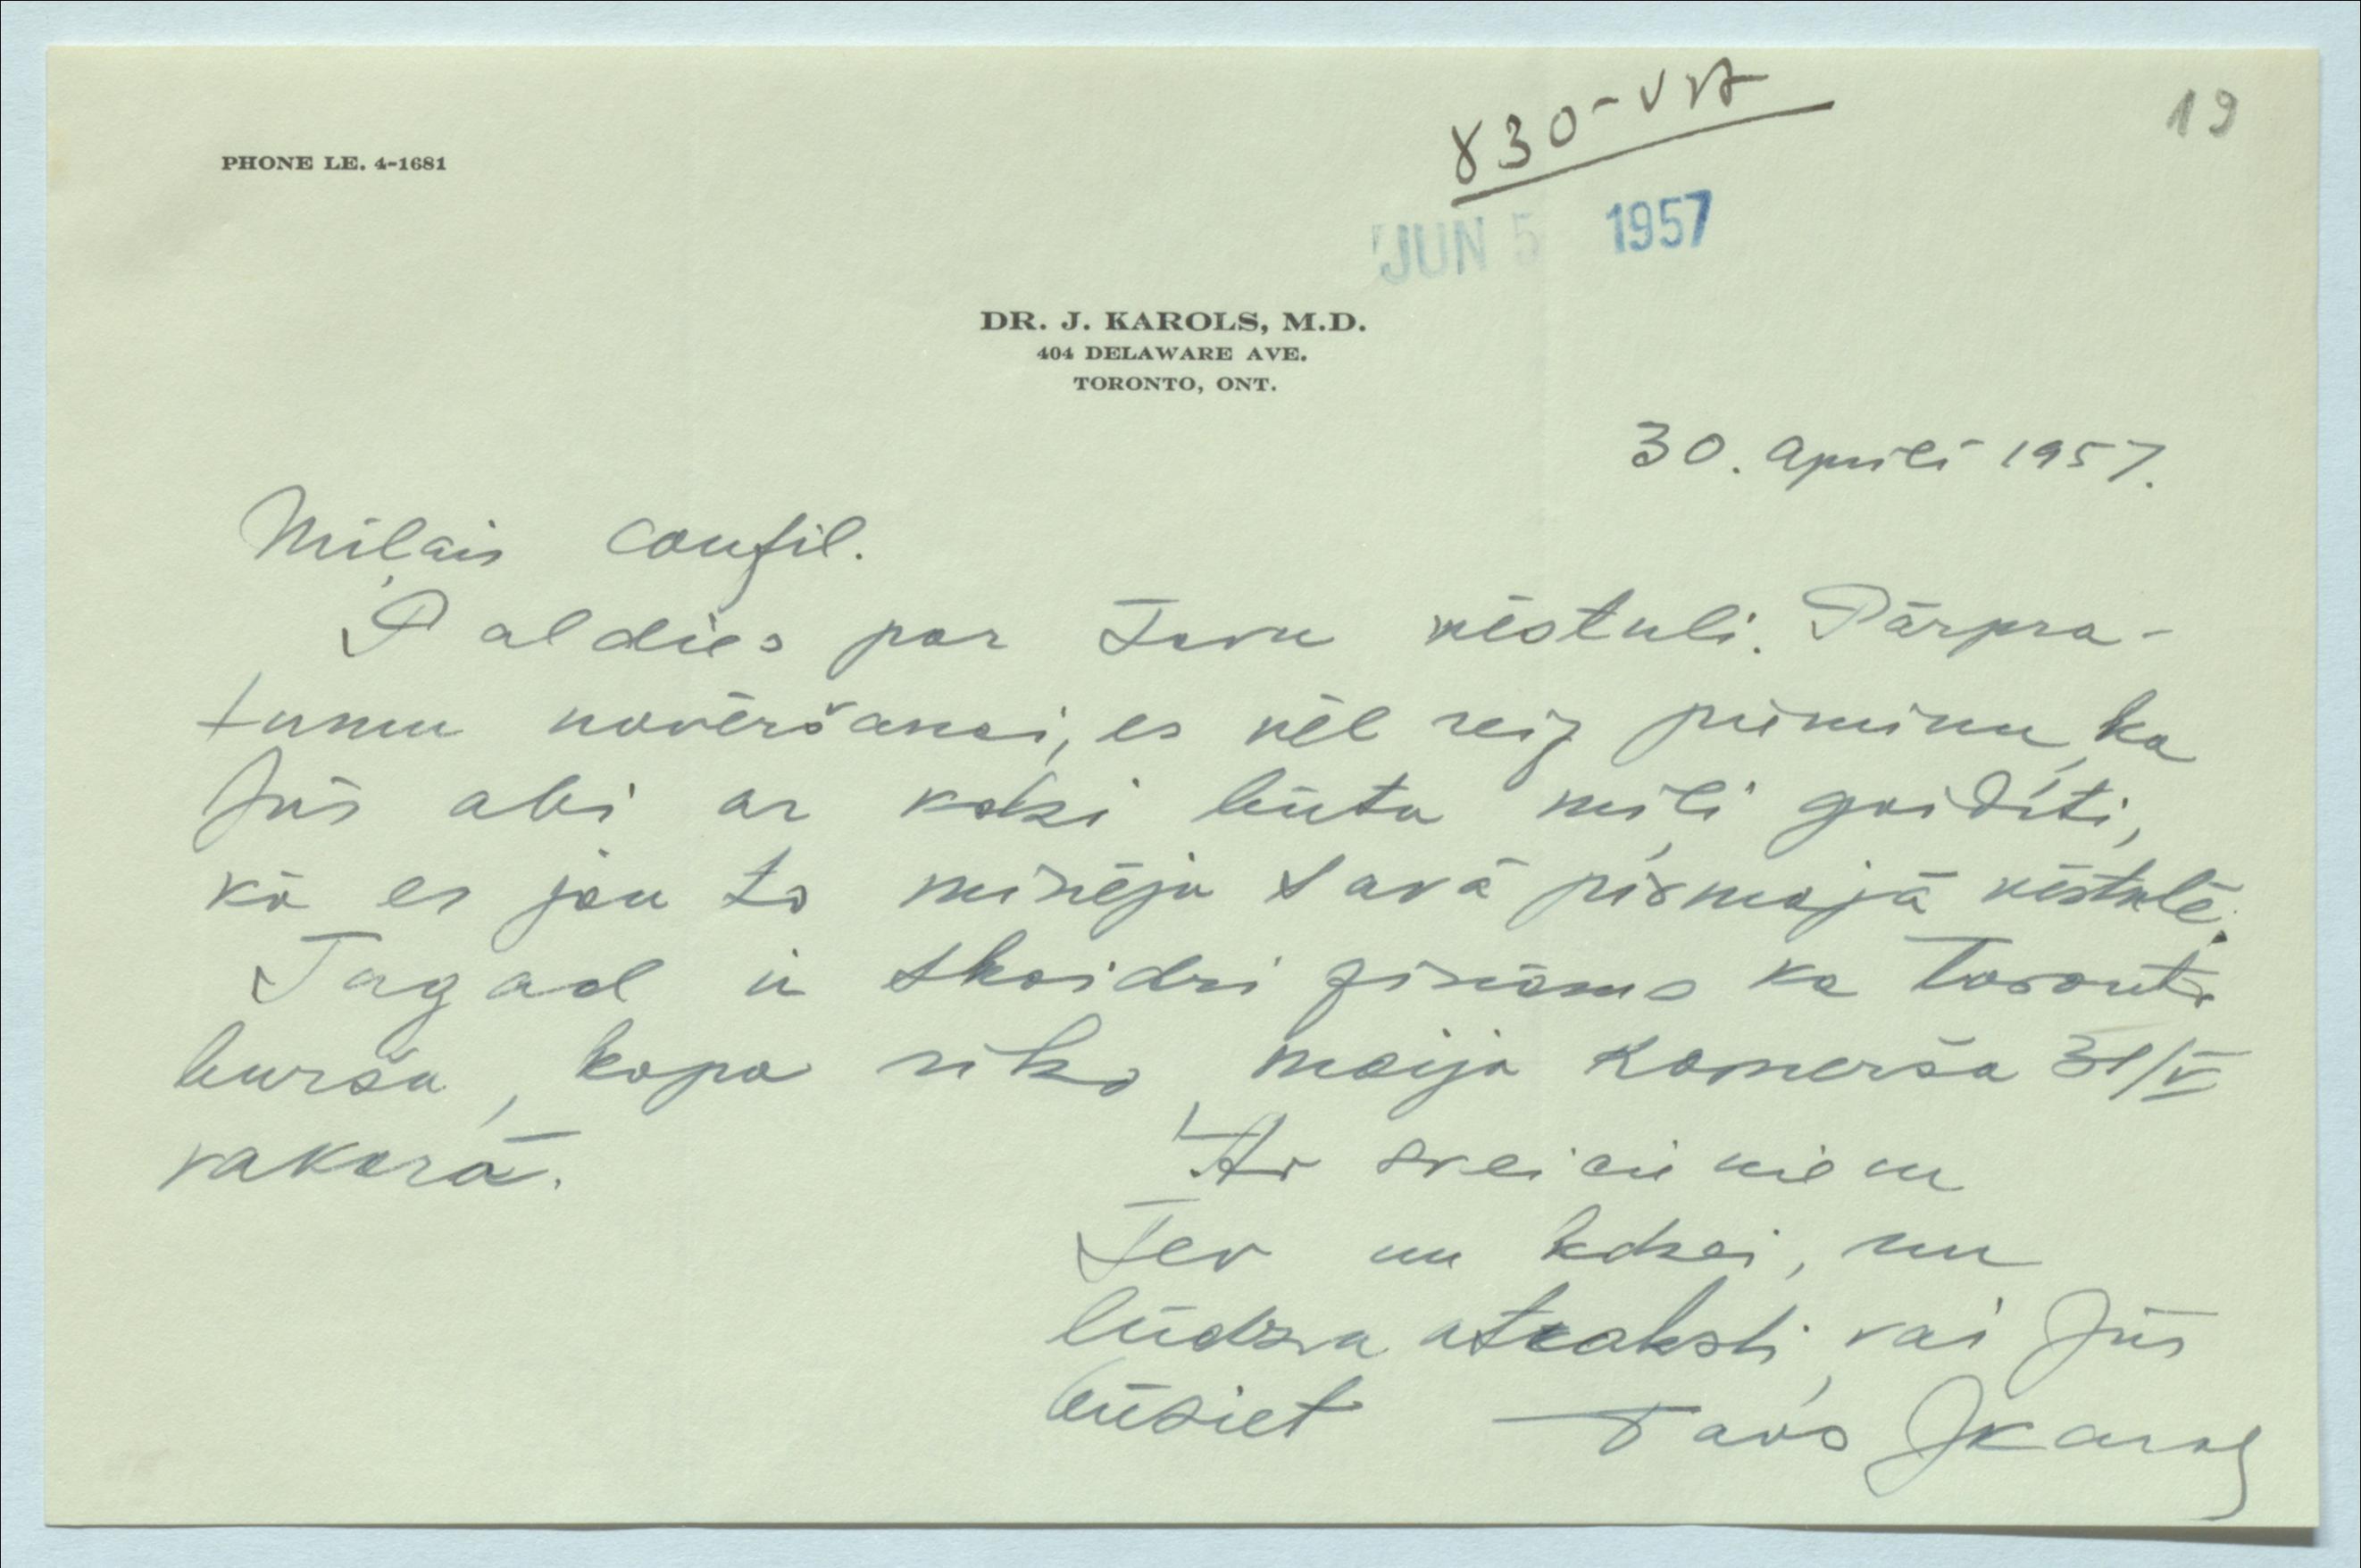 830-VVA
19
PHONE LE. 4-1681
JUN 5 1957
DR. J. KAROLS, M.D.
404 DELAWARE AVE.
TORONTO, ONT.
30. aprīlī 1957.
Mīļais confil.
Paldies par Tavu vēstuli. Pārpra-
tumu novēršanai, es vēl reiz pieminu, ka
Jūs abi ar kdzi būtu mīļi gaidīti,
kā es jau to minēju savā pirmajā vēstulē.
Tagad ir skaidri zināms ka Toronto
buršu kopa rīko maija komeršu 31/V
vakarā.
Ar sveicieniem
Tev un kdzei, un
lūdzu atraksti, vai Jūs
būsiet Tavs JKarols